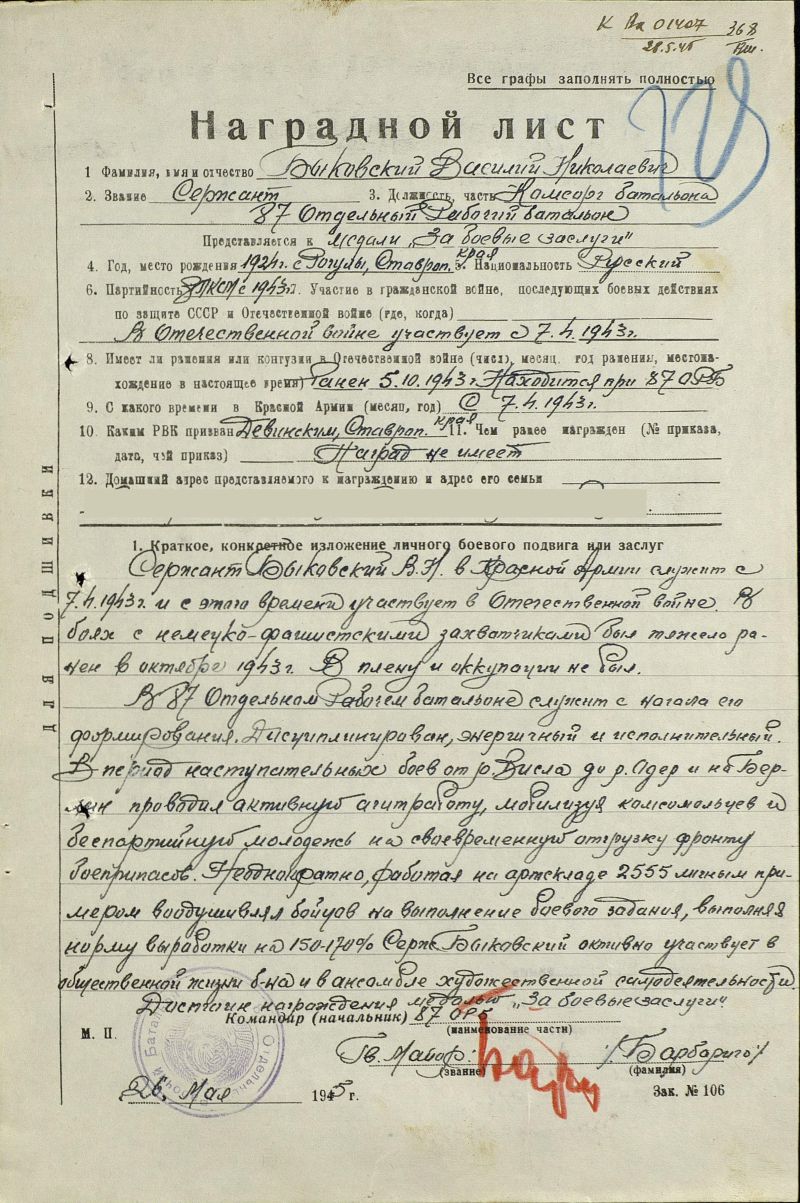 К Вх 01407 368
28.5.45
Все графы заполнять полностью
Наградной лист
1 Фамилия, имя и отчество Быковский Василий Николаевич
2. Звание Сержант 3. Должность, часть Комсорг батальона
87 Отдельный Рабочий батальон
Представляется к медали „За боевые заслуги"
4. Год, место рождения 1924г. с Рогулы, Ставроп. края 5. Национальность Русский
6. Партийность ВЛКСМ с 1943г. 7. Участие в гражданской войне, последующих боевых действиях
по защите СССР и Отечественной войне (где, когда)
В Отечественной войне участвует с 7.4.1943г.
8. Имеет ли ранения или контузии в Отечественной войне (число, месяц, год ранения, местона-
хождение в настоящее время) Ранен 5.10.1943г. Находится при 87 ОРБ
9. С какого времени в Красной Армии (месяц, год) С 7.4.1943г.
10. Каким РВК призван Девинским, Ставроп. края 11. Чем ранее награжден (№ приказа,
дата, чей приказ) Наград не имеет
12. Домашний адрес представляемого к награждению и адрес его семьи
ДЛЯ ПОДШИВКИ
1. Краткое, конкретное изложение личного боевого подвига или заслуг
Сержант Быковский В.Н. в Красной Армии служит с
7.4.1943г. и с этого времени участвует в Отечественной войне. В
боях с немецко-фашистскими захватчиками был тяжело ра-
нен в октябре 1943г. В плену и оккупации не был.
В 87 Отдельном Рабочем батальоне служит с начала его
формирования. Дисциплинирован, энергичный и исполнительный.
В период наступательных боев от р. Висла до р. Одер и на Бер-
лин проводил активную агитработу, мобилизуя комсомольцев и
беспартийную молодежь на своевременную отгрузку фронту
боеприпасов. Неоднократно, работая на артскладе 2555 личным при-
мером воодушевлял бойцов на выполнение боевого задания, выполняя
норму выработки на 150-170% Серж. Быковский активно участвует в
общественной жизни б-на и в ансамбле художественной самодеятельности.
Достоин награждения медалью „За боевые заслуги".
Командир (начальник) 87 ОРБ
(наименование части)
М. П.
Гв. Майор: /Барбариго/
(звание) (фамилия)
26. Мая 1945 г.
Зак. № 106